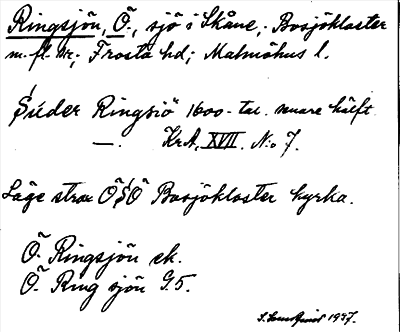 Ringsjön, Ö., sjö i Skåne; Bosjökloster
m. fl. snr; Frosta hd; Malmöhus l.
Süder Ringsiö 1600-tal. senare hälft
—. KrA, XVII. No 7.
Läge strax ÖSÖ Bosjökloster kyrka.
Ö. Ringsjön ek.
Ö. Ring sjön G5.
1937.